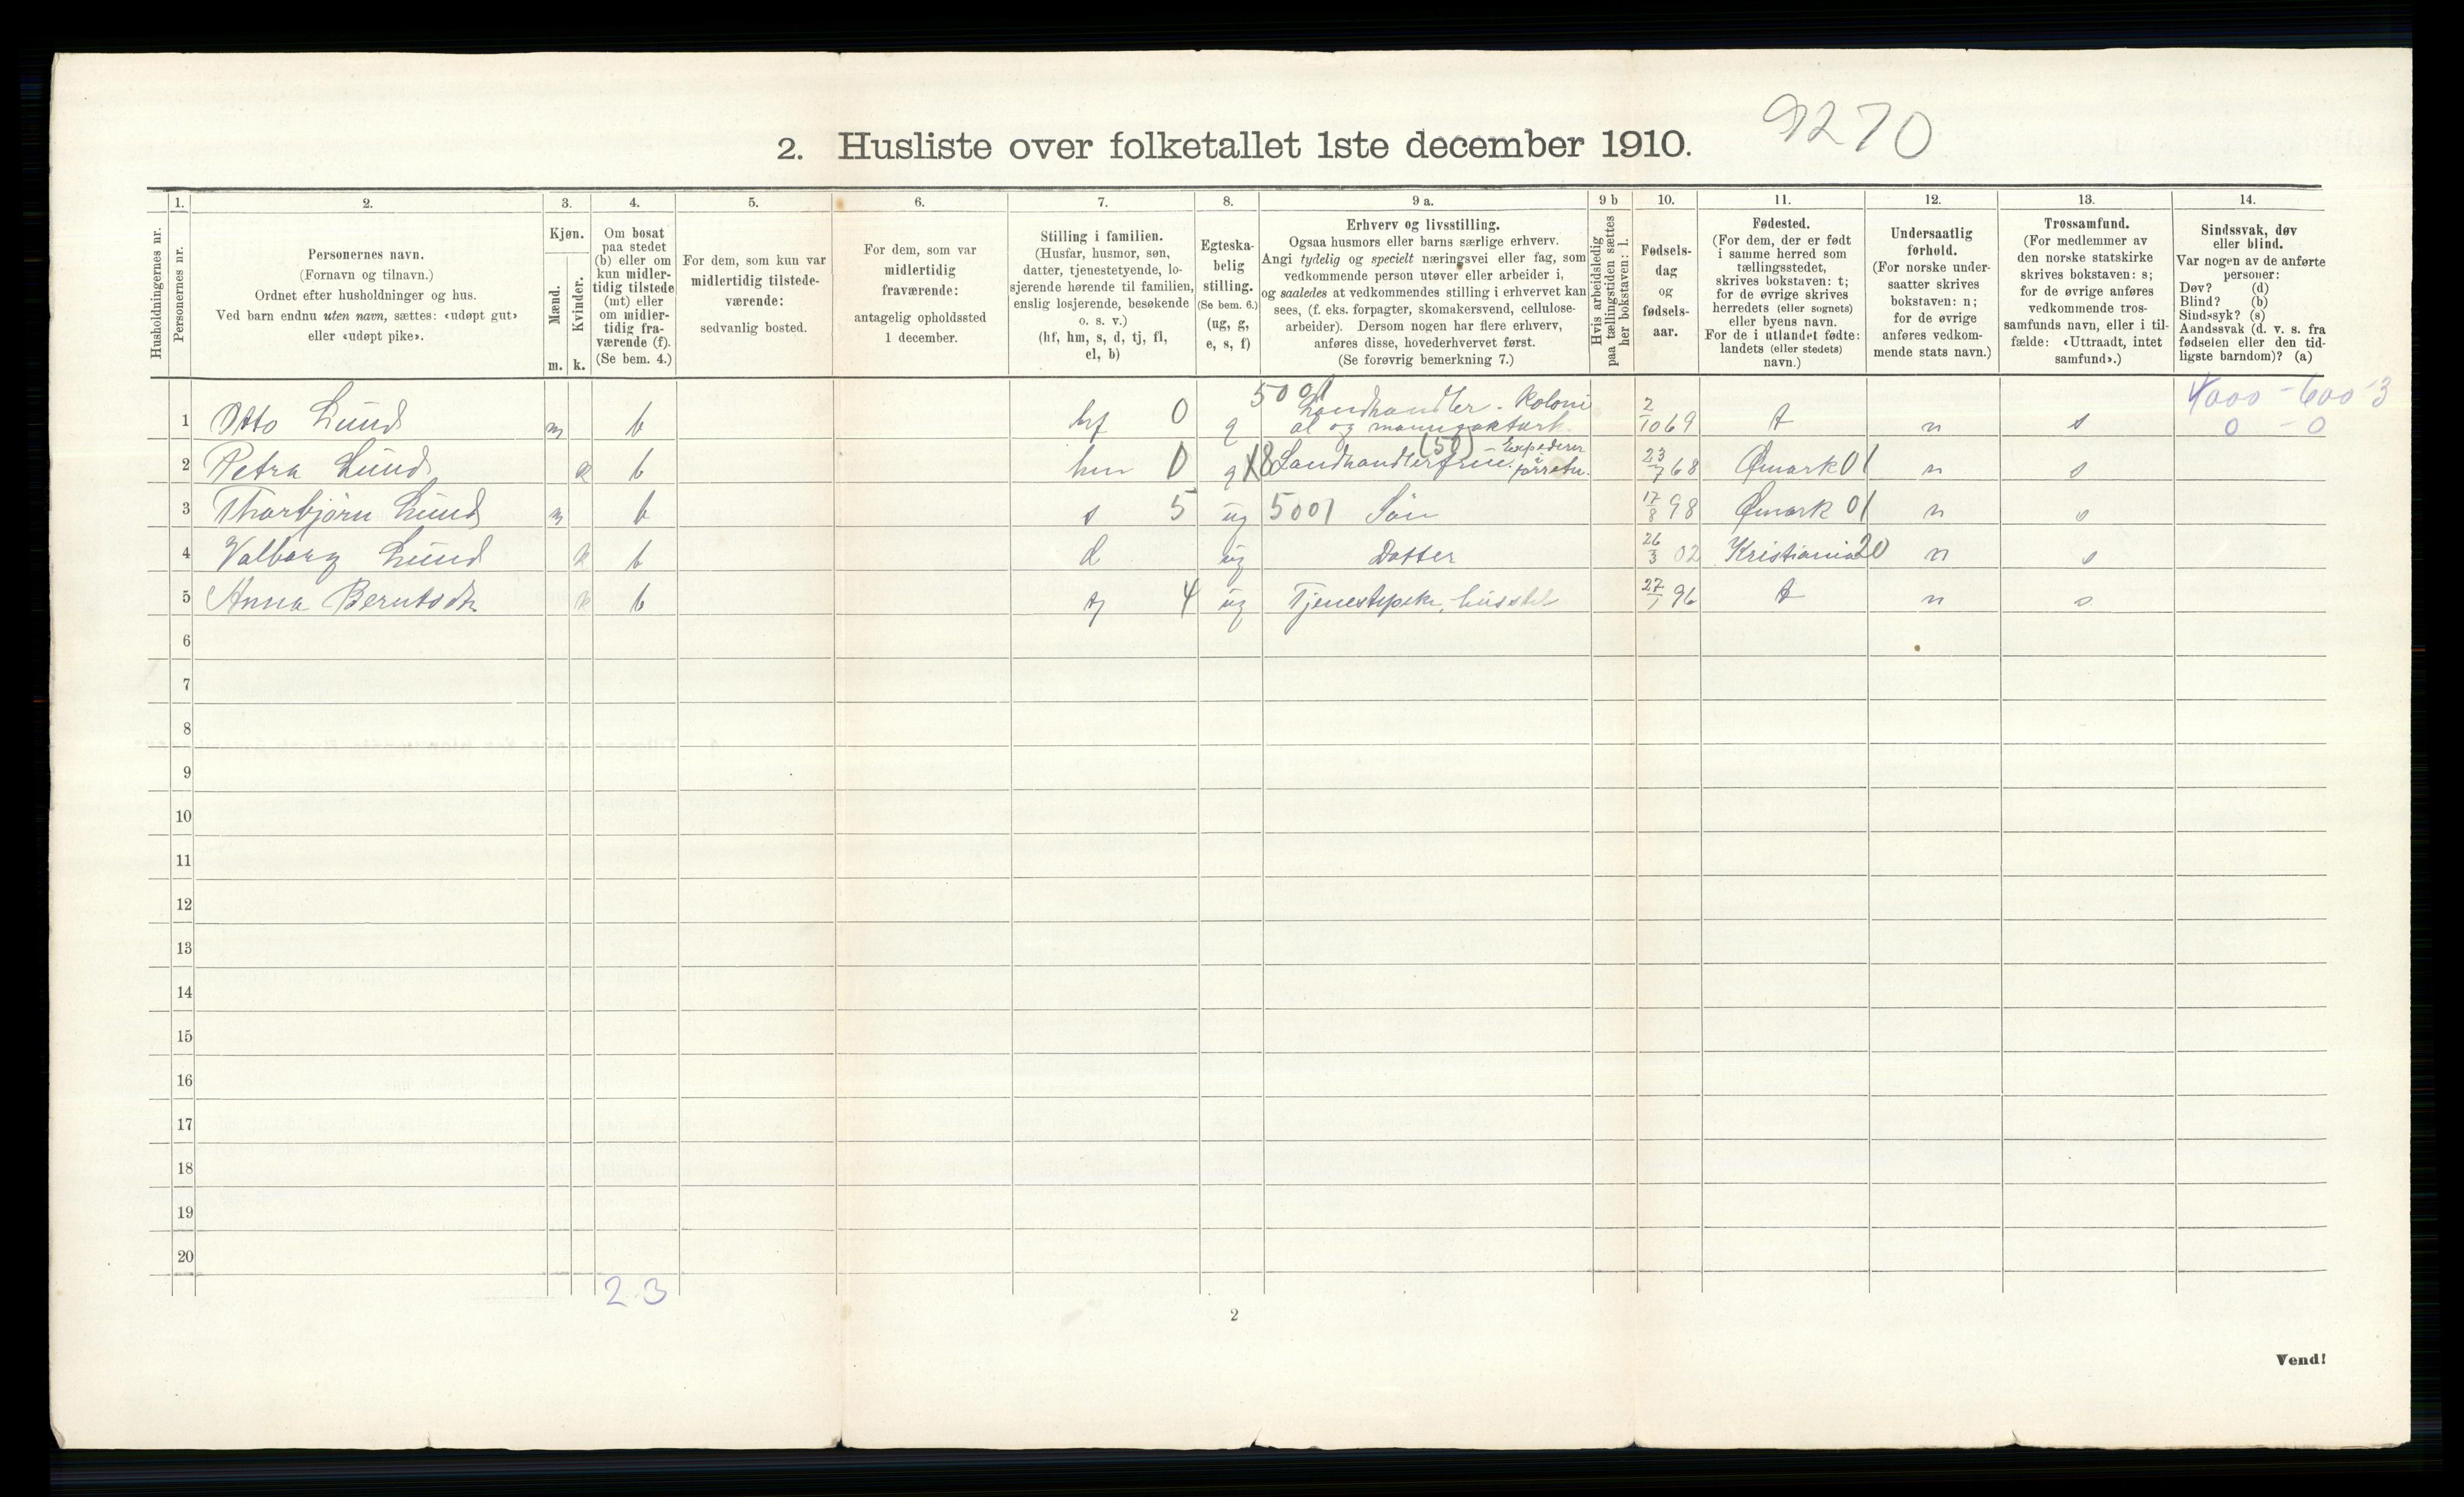 9270
2. Husliste over folketallet 1ste december 1910.
Husholdningernes nr.
1.
Personernes nr.
2.
Personernes navn.
(Fornavn og tilnavn.)
Ordnet efter husholdninger og hus.
Ved barn endnu uten navn, sættes: «udøpt gut»
eller «udøpt pike».
3.
Kjøn.
Mænd.
Kvinder.
m. k.
4.
Om bosat
paa stedet
(b) eller om
kun midler-
tidig tilstede
(mt) eller
om midler-
tidig fra-
værende (f).
(Se bem. 4.)
5.
For dem, som kun var
midlertidig tilstede-
værende:
sedvanlig bosted.
6.
For dem, som var
midlertidig
fraværende:
antagelig opholdssted
1 december.
7.
Stilling i familien.
(Husfar, husmor, søn,
datter, tjenestetyende, lo-
sjerende hørende til familien,
enslig losjerende, besøkende
o. s. v.)
(hf, hm, s, d, tj, fl,
el, b)
8.
Egteska-
belig
stilling.
(Se bem. 6.)
(ug, g,
e, s, f)
9 a.
Erhverv og livsstilling.
Ogsaa husmors eller barns særlige erhverv.
Angi tydelig og specielt næringsvei eller fag, som
vedkommende person utøver eller arbeider i,
og saaledes at vedkommendes stilling i erhvervet kan
sees, (f. eks. forpagter, skomakersvend, cellulose-
arbeider). Dersom nogen har flere erhverv,
anføres disse, hovederhvervet først.
(Se forøvrig bemerkning 7.)
9 b
Hvis arbeidsledig
paa tællingstiden sættes
her bokstaven: l.
10.
Fødsels-
dag
og
fødsels-
aar.
11.
Fødested.
(For dem, der er født
i samme herred som
tællingsstedet,
skrives bokstaven: t;
for de øvrige skrives
herredets (eller sognets)
eller byens navn.
For de i utlandet fødte:
landets (eller stedets)
navn.)
12.
Undersaatlig
forhold.
(For norske under-
saatter skrives
bokstaven: n;
for de øvrige
anføres vedkom-
mende stats navn.)
13.
Trossamfund.
(For medlemmer av
den norske statskirke
skrives bokstaven: s;
for de øvrige anføres
vedkommende tros-
samfunds navn, eller i til-
fælde: «Uttraadt, intet
samfund».)
14.
Sindssvak, døv
eller blind.
Var nogen av de anførte
personer:
Døv? (d)
Blind? (b)
Sindssyk? (s)
Aandssvak (d. v. s. fra
fødselen eller den tid-
ligste barndom)? (a)
5001 4000 - 600 - 3
1 Otto Lund m b hf 0 g Landhandler - Koloni
al og manufakturh. 2/10 69 t n s 0 - 0
2 Petra Lund k b hm 0 g 18 Landhandlerfrue. (50) - Expederer 23/7 68 Ømark 01 n s
3 Thorbjørn Lund m b s 5 ug 5001 Søn 17/8 98 Ømark 01 n s
4 Valborg Lund k b d ug Datter 26/3 02 Kristiania 20 n s
5 Anna Berntsdtr. k b tj 4 ug Tjenestepike, husstel 27/1 96 t n s
6
7
8
9
10
11
12
13
14
15
16
17
18
19
20
2 3
2
Vend!